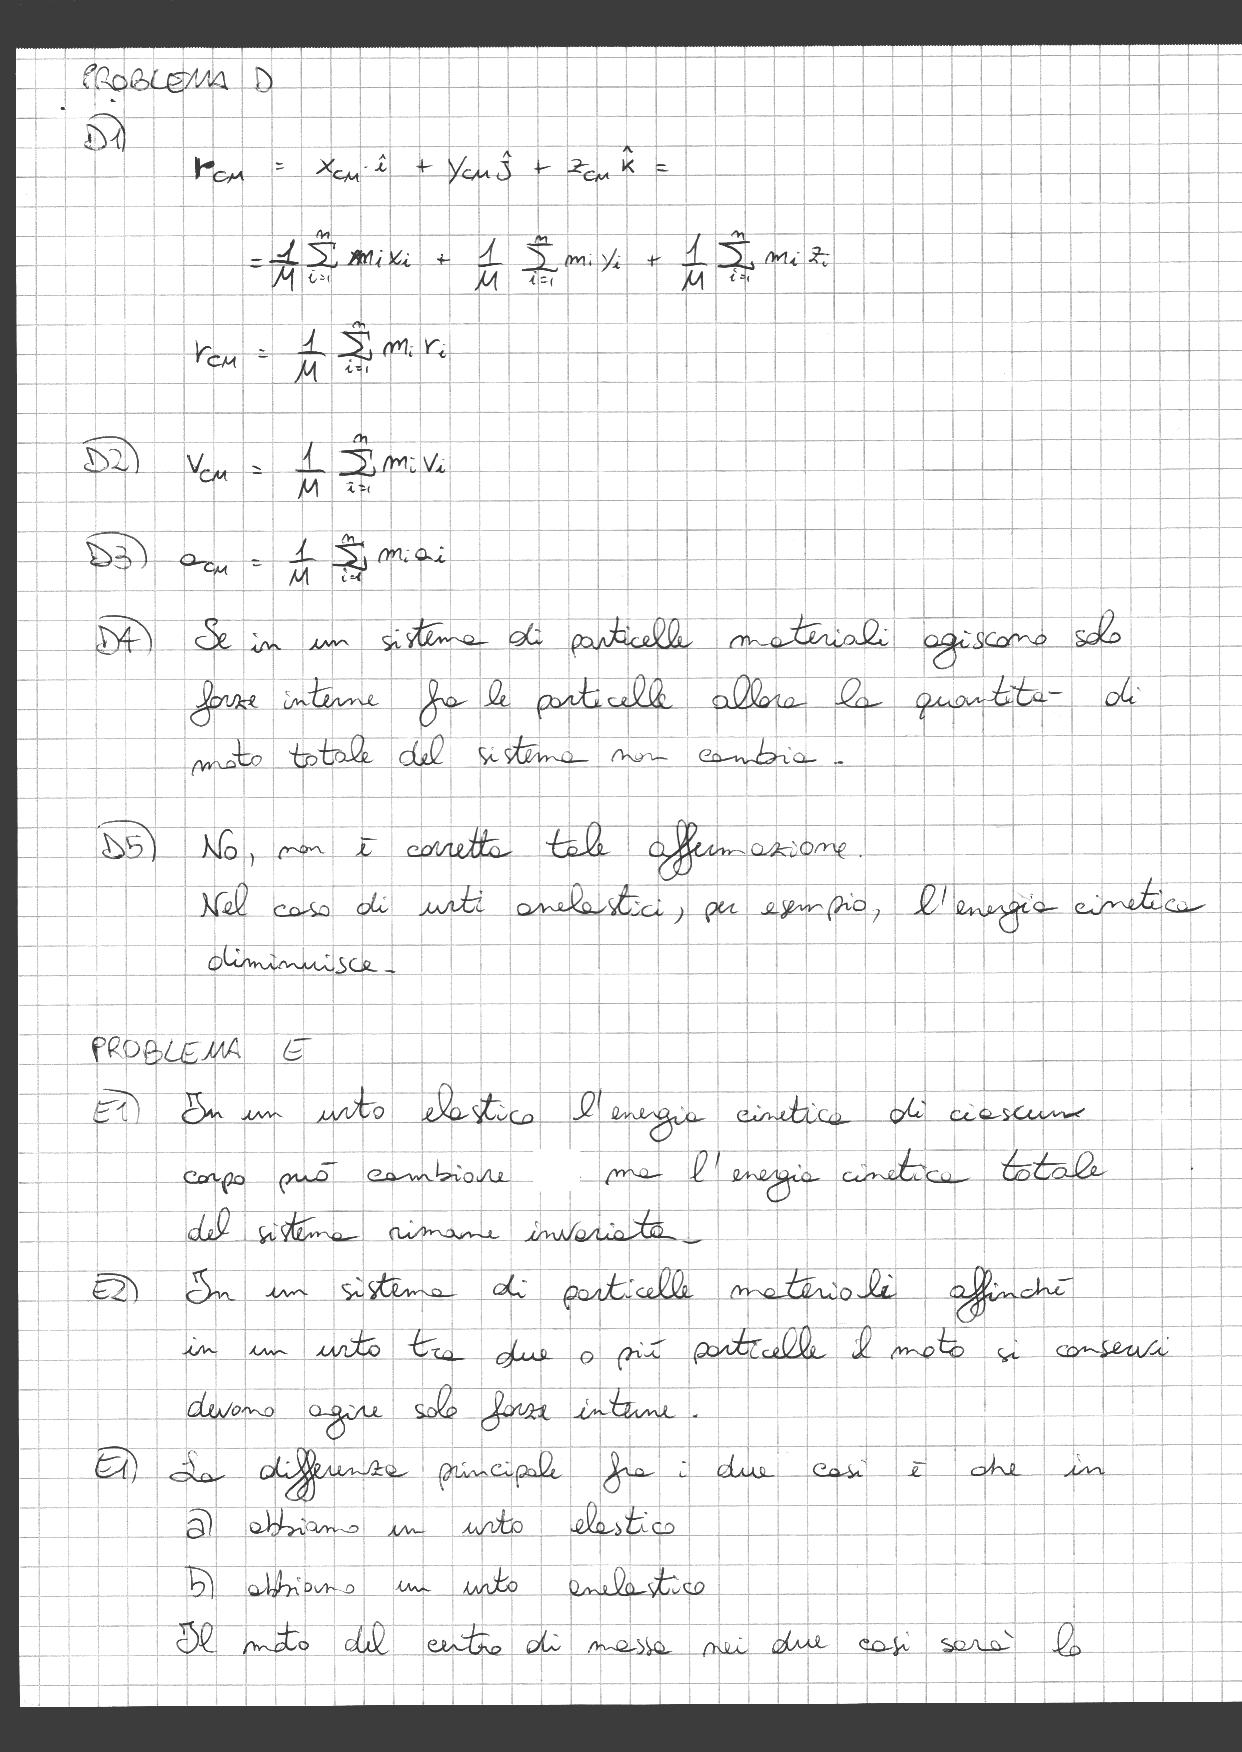 PROBLEMA D
D1)
r_CM = x_CM · î + y_CM ĵ + z_CM k̂ =
= 1/M Σ_{i=1}^{n} m_i x_i + 1/M Σ_{i=1}^{n} m_i y_i + 1/M Σ_{i=1}^{n} m_i z_i
r_CM = 1/M Σ_{i=1}^{n} m_i r_i
D2) v_CM = 1/M Σ_{i=1}^{n} m_i v_i
D3) a_CM = 1/M Σ_{i=1}^{n} m_i a_i
D4) Se in un sistema di particelle materiali agiscono solo
forze interne fra le particelle allora la quantità di
moto totale del sistema non cambia.
D5) No, non è corretta tale affermazione.
Nel caso di urti anelastici, per esempio, l'energia cinetica
diminuisce.
PROBLEMA E
E1) In un urto elastico l'energia cinetica di ciascun
corpo può cambiare ma l'energia cinetica totale
del sistema rimane invariata.
E2) In un sistema di particelle materiali affinché
in un urto tra due o più particelle il moto si conservi
devono agire solo forze interne.
E1) La differenza principale fra i due casi è che in
a) abbiamo un urto elastico
b) abbiamo un urto anelastico
Il moto del centro di massa nei due casi sarà lo